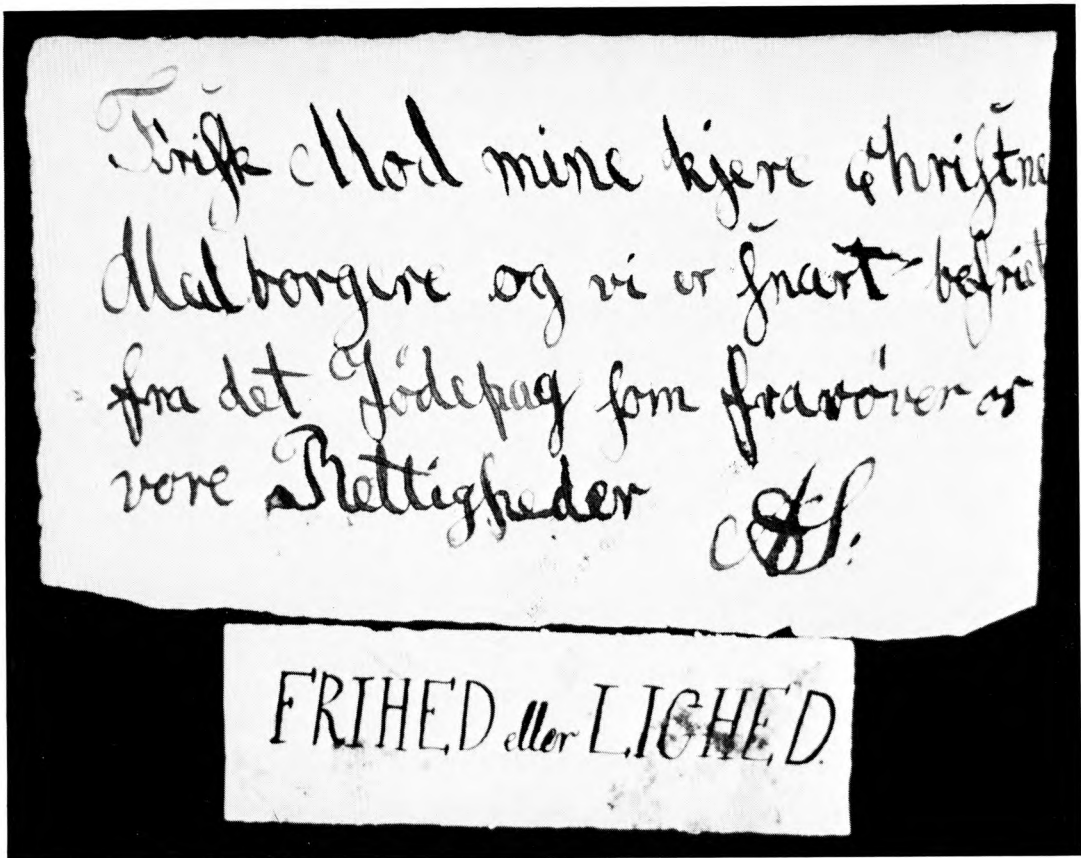 Frisk Mod mine kjere Christne
Medborgere og vi er snart befriet
fra det Jødepag som fravøver os
vore Rettigheder
FRIHED eller LIGHED.